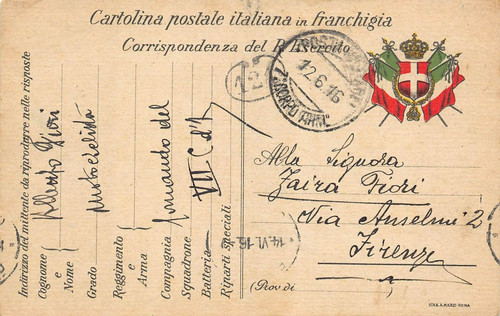 Cartolina postale italiana in franchigia
Corrispondenza del R. Esercito
12
POSTA MILITARE
12.6.16
CORPO ARM.
Indirizzo del mittente da riprodurre nelle risposte
Cognome e Nome Alberto Fiori
Grado motociclista
Reggimento e Arma
Compagnia Comando del
Squadrone
Batteria VII C d'A
Riparti speciali
Alla Signora
Zaira Fiori
Via Anselmi 2
Firenze
(Prov. di
14.VI.16